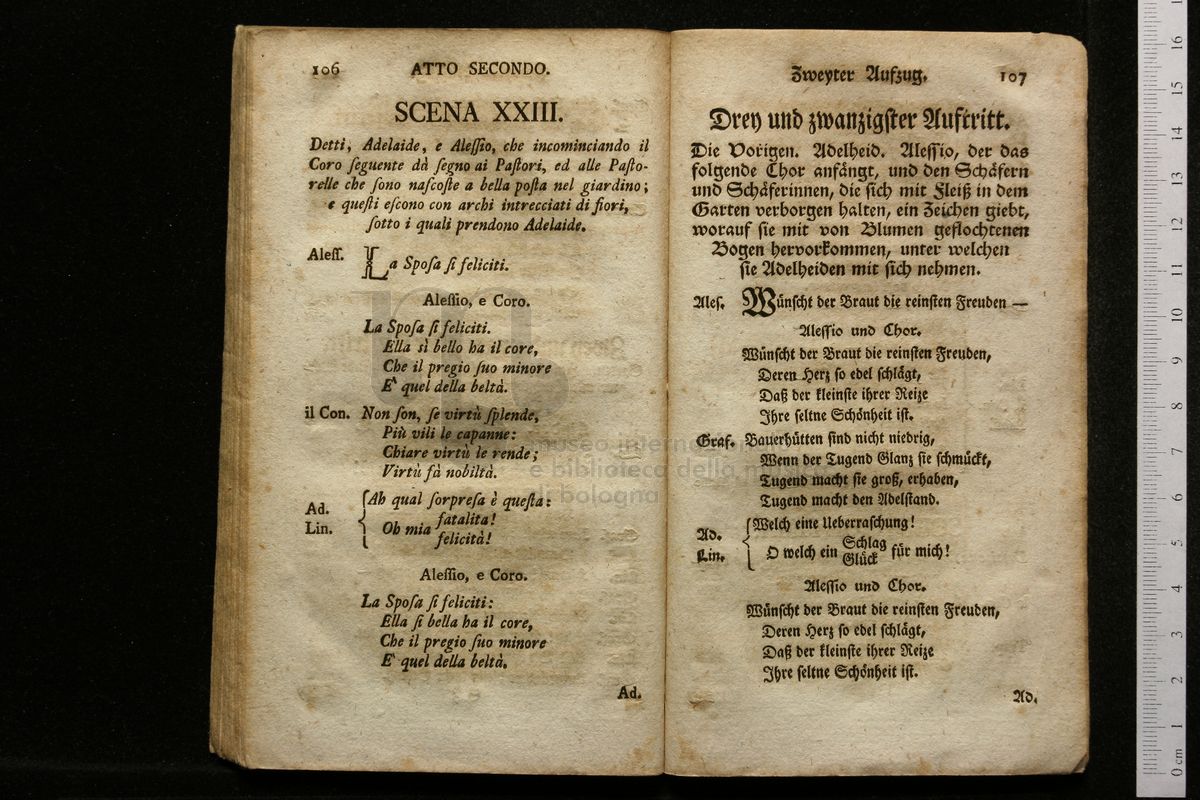 106 ATTO SECONDO.
SCENA XXIII.
Detti, Adelaide, e Aleſſio, che incominciando il
Coro ſeguente dà ſegno ai Paſtori, ed alle Paſto-
relle che ſono naſcoſte a bella poſta nel giardino;
e queſti eſcono con archi intrecciati di fiori,
ſotto i quali prendono Adelaide.
Aleſſ. La Spoſa ſi feliciti.
Aleſſio, e Coro.
La Spoſa ſi feliciti.
Ella sì bello ha il core,
Che il pregio ſuo minore
E' quel della beltà.
il Con. Non ſon, ſe virtù ſplende,
Più vili le capanne:
Chiare virtù le rende;
Virtù fà nobiltà.
Ad. Lin. { Ah qual ſorpreſa è queſta:
Oh mia fatalita!
felicità!
Aleſſio, e Coro.
La Spoſa ſi feliciti:
Ella ſi bella ha il core,
Che il pregio ſuo minore
E' quel della beltà.
Ad.
Zweyter Aufzug. 107
Drey und zwanzigſter Auftritt.
Die Vorigen. Adelheid. Aleſſio, der das
folgende Chor anfängt, und den Schäfern
und Schäferinnen, die ſich mit Fleiß in dem
Garten verborgen halten, ein Zeichen giebt,
worauf ſie mit von Blumen geflochtenen
Bogen hervorkommen, unter welchen
ſie Adelheiden mit ſich nehmen.
Aleſ. Wünſcht der Braut die reinſten Freuden —
Aleſſio und Chor.
Wünſcht der Braut die reinſten Freuden,
Deren Herz ſo edel ſchlägt,
Daß der kleinſte ihrer Reize
Ihre ſeltne Schönheit iſt.
Graf. Bauerhütten ſind nicht niedrig,
Wenn der Tugend Glanz ſie ſchmückt,
Tugend macht ſie groß, erhaben,
Tugend macht den Adelſtand.
Ad. Lin. { Welch eine Ueberraſchung!
O welch ein Schlag für mich!
Glück
Aleſſio und Chor.
Wünſcht der Braut die reinſten Freuden,
Deren Herz ſo edel ſchlägt,
Daß der kleinſte ihrer Reize
Ihre ſeltne Schönheit iſt.
Ad.
museo internazionale
e biblioteca della musica
di bologna
0 cm 1 2 3 4 5 6 7 8 9 10 11 12 13 14 15 16